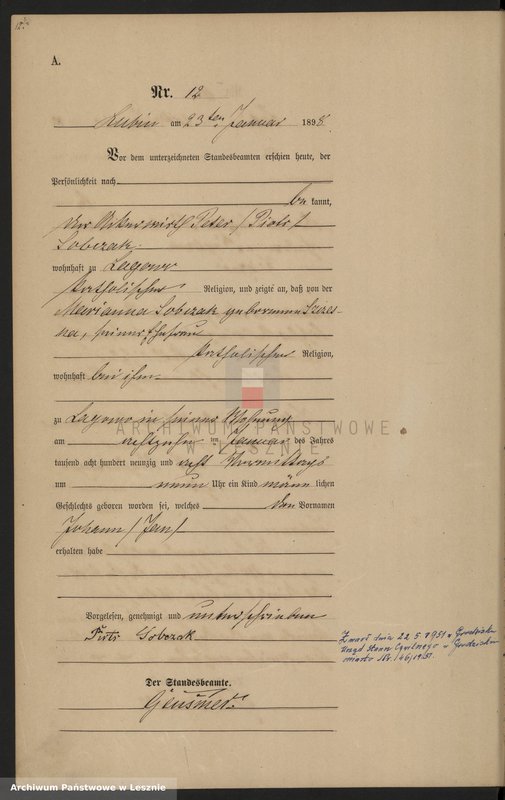 12.
A.
Nr. 12
Lubin am 23ten Januar 1898.
Vor dem unterzeichneten Standesbeamten erschien heute, der
Persönlichkeit nach
bekannt,
der Ackerwirth Peter /Piotr/
Sobczak
wohnhaft zu Lagowo
katholischer Religion, und zeigte an, daß von der
Marianna Sobczak geborenen
seiner Ehefrau
katholischer Religion,
wohnhaft bei ihm
zu Lagowo in seiner Wohnung
am achtzehn ten Januar des Jahres
tausend acht hundert neunzig und acht Vormittags
um neun Uhr ein Kind männ lichen
Geschlechts geboren worden sei, welches den Vornamen
Johann /Jan/
erhalten habe
Vorgelesen, genehmigt und unterschrieben
Piotr Sobczak
Der Standesbeamte.
Zmarł dnia 22.5.1951 w Grodzisku
Urząd Stanu Cywilnego w Grodzisku
miasto Nr. 46/1951.
ARCHIWUM PAŃSTWOWE
W LESZNIE
Archiwum Państwowe w Lesznie